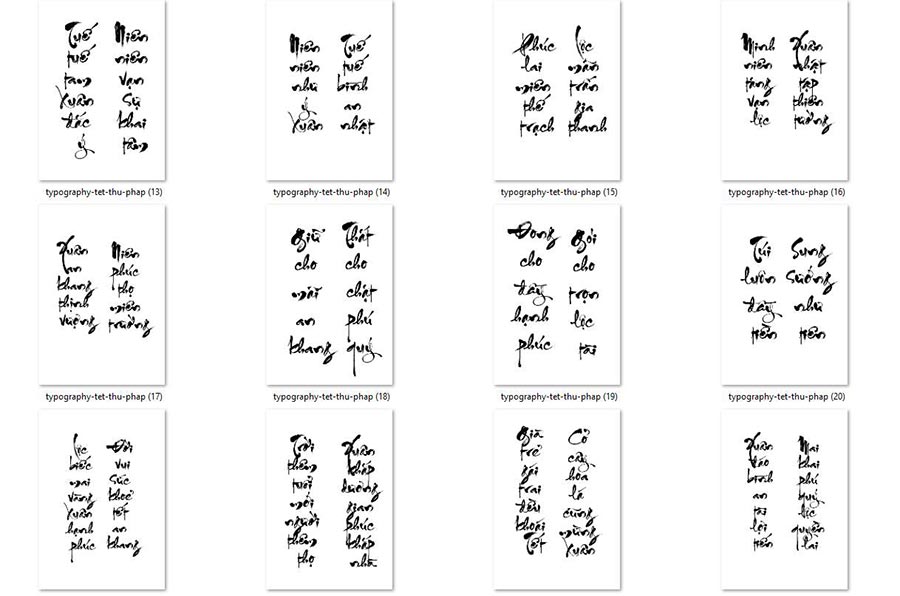 Tuế tuế tam Xuân đắc ý
Niên niên vạn sự khai tâm
typography-tet-thu-phap (13)
Niên niên như ý Xuân
Tuế tuế bình an nhật
typography-tet-thu-phap (14)
Phúc lai miên thế trạch
Lộc mãn trấn gia thanh
typography-tet-thu-phap (15)
Minh niên tăng vạn lộc
Xuân nhật tập thiên tường
typography-tet-thu-phap (16)
Xuân an khang thịnh vượng
Niên phúc thọ miên trường
typography-tet-thu-phap (17)
Giữ cho mãi an khang
Thắt cho chặt phú quý
typography-tet-thu-phap (18)
Đong cho đầy hạnh phúc
Gói cho trọn lộc tài
typography-tet-thu-phap (19)
Túi luôn đầy tiền
Sung Sướng như tiên
typography-tet-thu-phap (20)
Lộc biếc mai vàng Xuân hạnh phúc
Đời vui sức khoẻ tết an khang
Trời thêm tuổi mới người thêm thọ
Xuân khắp dương gian phúc khắp nhà
Già trẻ gái trai đều khoái Tết
Cỏ cây hoa lá cũng mừng Xuân
Xuân đáo bình an tài lợi tiến
Mai khai phú quý lộc quyền lai